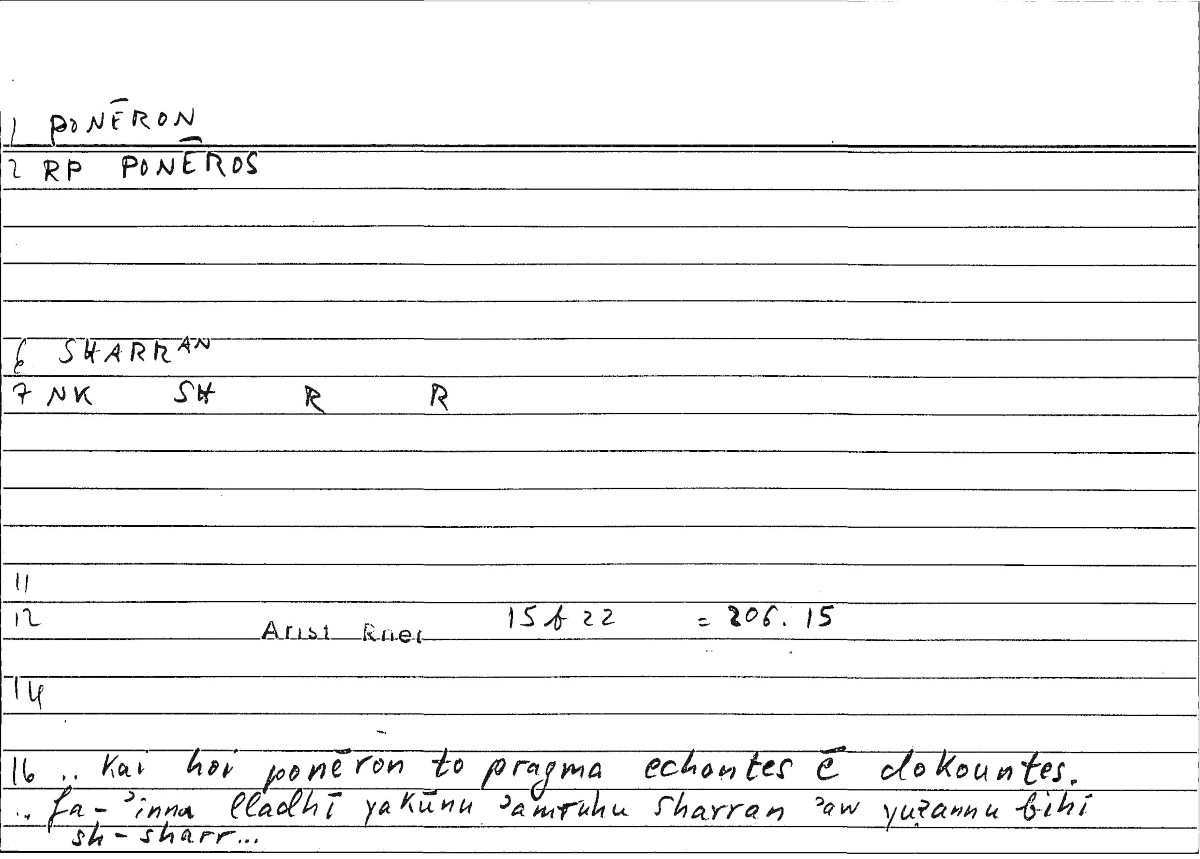 1 PONĒRON
2 RP PONĒROS
6 SHARRAN
7 NK SH R R
11
12 Arist Rhet 15 b 22 = 206. 15
14
16 .. Kai hoi ponēron to pragma echontes ē dokountes.
.. fa-ʾinna lladhī yakūnu ʾamruhu sharran ʾaw yuẓannu bihī
sh-sharr...